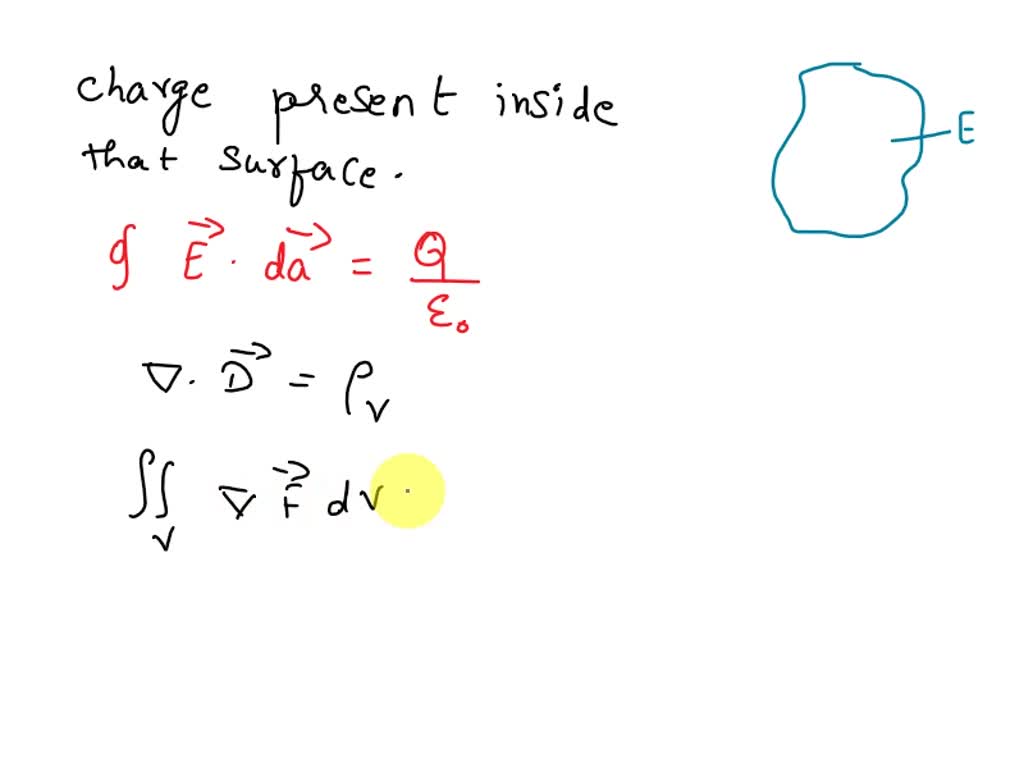 charge present inside
that surface.
E
∮ E⃗ · da⃗ = Q/ε₀
∇ · D⃗ = ρᵥ
∬ᵥ ∇ F⃗ dv